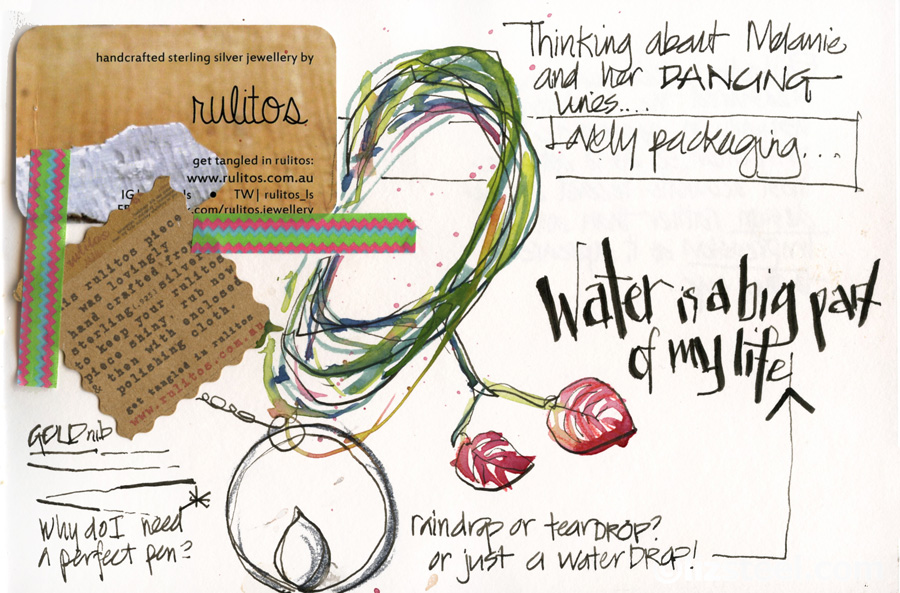 handcrafted sterling silver jewellery by
rulitos
get tangled in rulitos:
www.rulitos.com.au
IG ls • TW| rulitos_ls
.com/rulitos.jewellery
is rulitos piece
was lovingly
hand crafted from
sterling silver
to keep your rulitos
piece shiny, rub now
& then with enclosed
polishing cloth.
get tangled in rulitos
www.rulitos.com.au
Thinking about Melanie
and her DANCING
lines....
Lovely packaging...
Water is a big part
of my life
GOLD nib
Why do I need
a perfect pen?
raindrop or tearDROP?
or just a waterDROP!